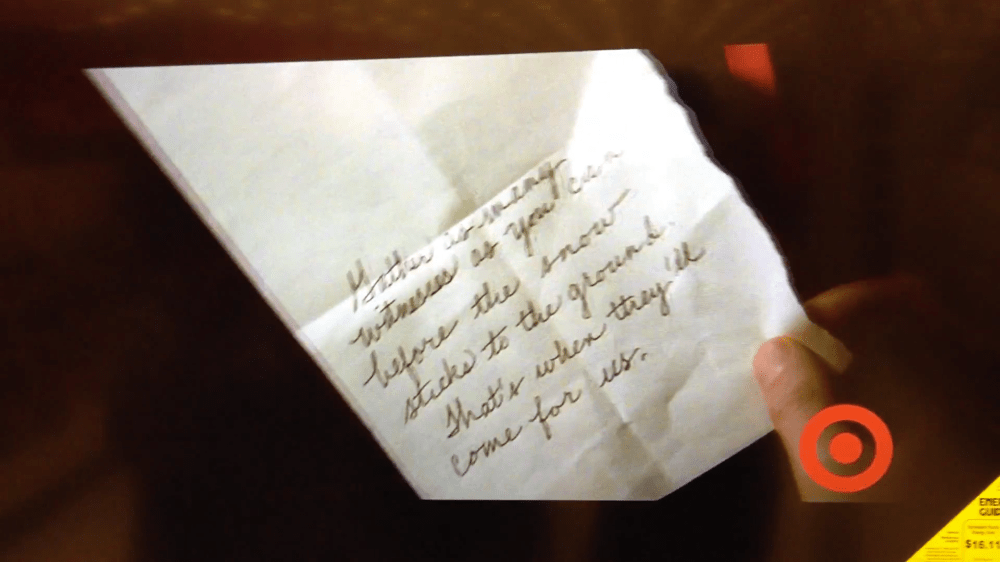 Gather as many
witnesses as you can
before the snow
sticks to the ground.
That's when they'll
come for us.
ENE
GUID
$16.11